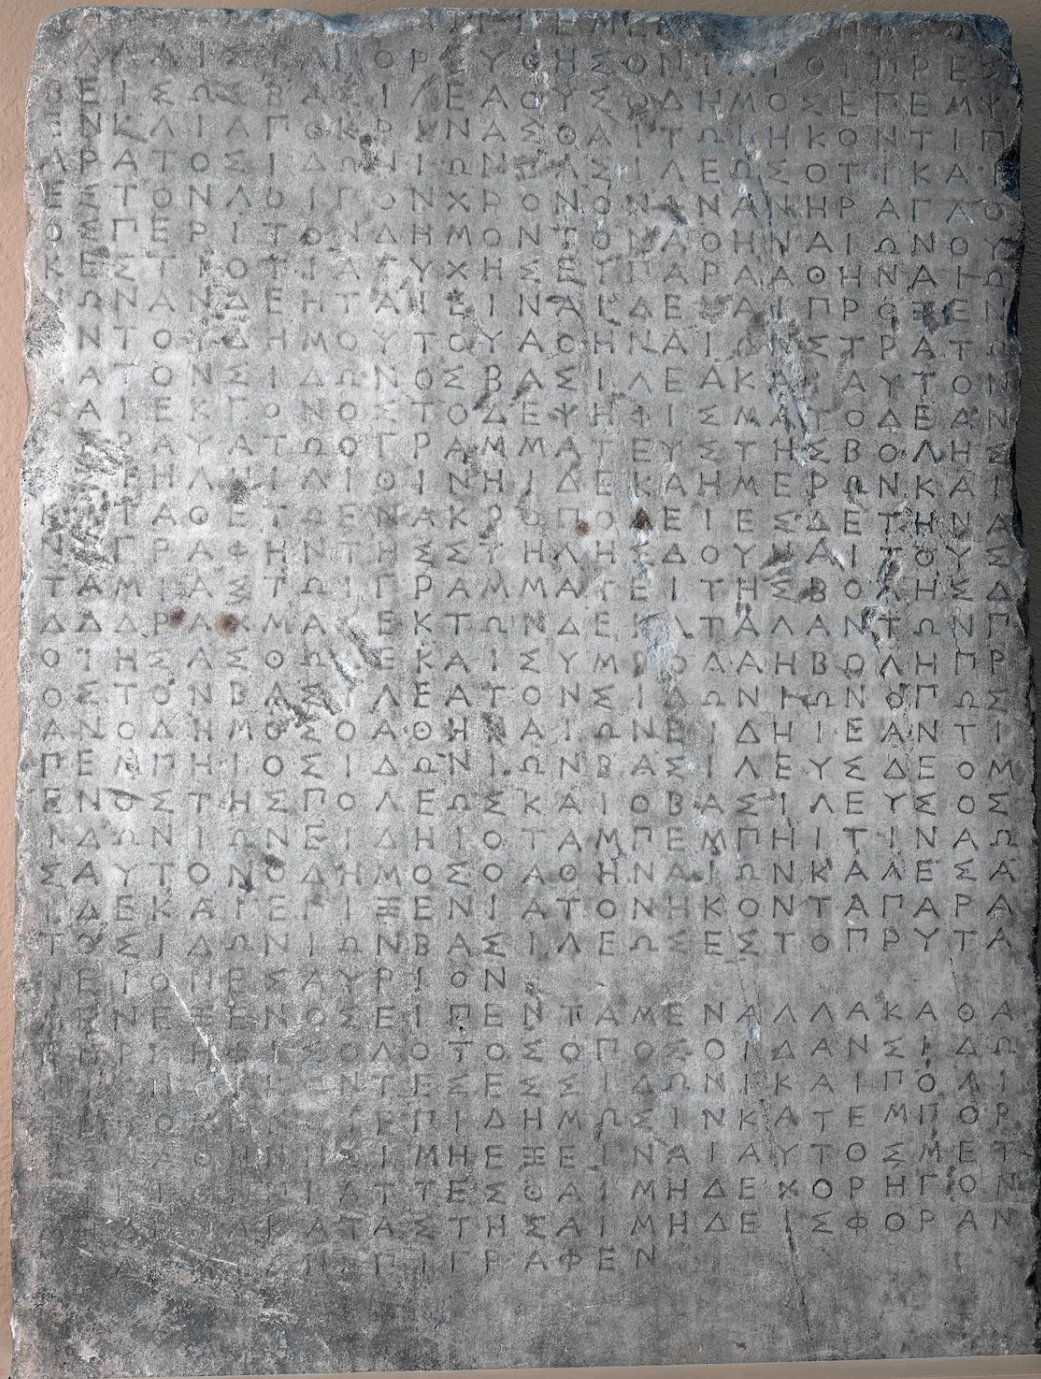 ΛΛΙΣΤΑΠΟΡΕΥΘΗΣΟΝΤΑΙΟΙΠΡΕΣ
ΒΕΙΣΩΣΒΑΣΙΛΕΑΟΥΣΟΔΗΜΟΣΕΠΕΜΨ
ΕΝΚΑΙΑΠΟΚΡΙΝΑΣΘΑΙΤΩΙΗΚΟΝΤΙΠ
ΑΡΑΤΟΣΙΔΩΝΙΩΝΒΑΣΙΛΕΩΣΟΤΙΚΑΙ
ΕΣΤΟΝΛΟΙΠΟΝΧΡΟΝΟΝΩΝΑΝΗΡΑΓΑΘ
ΟΣΠΕΡΙΤΟΝΔΗΜΟΝΤΟΝΑΘΗΝΑΙΩΝΟΥ
ΚΕΣΤΙΟΤΙΑΤΥΧΗΣΕΙΠΑΡΑΑΘΗΝΑΙΩ
ΝΩΝΑΝΔΕΗΤΑΙΕΙΝΑΙΔΕΚΑΙΠΡΟΞΕΝ
ΟΝΤΟΥΔΗΜΟΥΤΟΥΑΘΗΝΑΙΩΝΣΤΡΑΤΩ
ΝΑΤΟΝΣΙΔΩΝΟΣΒΑΣΙΛΕΑΚΑΙΑΥΤΟΝ
ΚΑΙΕΚΓΟΝΟΣΤΟΔΕΨΗΦΙΣΜΑΤΟΔΕΑΝ
ΑΓΡΑΨΑΤΩΟΓΡΑΜΜΑΤΕΥΣΤΗΣΒΟΛΗΣ
ΕΣΤΗΛΗΙΛΙΘΙΝΗΙΔΕΚΑΗΜΕΡΩΝΚΑΙ
ΚΑΤΑΘΕΤΩΕΝΑΚΡΟΠΟΛΕΙΕΣΔΕΤΗΝΑ
ΝΑΓΡΑΦΗΝΤΗΣΣΤΗΛΗΣΔΟΥΝΑΙΤΟΥΣ
ΤΑΜΙΑΣΤΩΙΓΡΑΜΜΑΤΕΙΤΗΣΒΟΛΗΣΔ
ΔΔΔΡΑΧΜΑΣΕΚΤΩΝΔΕΚΑΤΑΛΑΝΤΩΝΠ
ΟΙΗΣΑΣΘΩΔΕΚΑΙΣΥΜΒΟΛΑΗΒΟΛΗΠΡ
ΟΣΤΟΝΒΑΣΙΛΕΑΤΟΝΣΙΔΩΝΙΩΝΟΠΩΣ
ΑΝΟΔΗΜΟΣΟΑΘΗΝΑΙΩΝΕΙΔΗΙΕΑΝΤΙ
ΠΕΜΠΗΙΟΣΙΔΩΝΙΩΝΒΑΣΙΛΕΥΣΔΕΟΜ
ΕΝΟΣΤΗΣΠΟΛΕΩΣΚΑΙΟΒΑΣΙΛΕΥΣΟΣ
ΙΔΩΝΙΩΝΕΙΔΗΙΟΤΑΜΠΕΜΠΗΙΤΙΝΑΩ
ΣΑΥΤΟΝΟΔΗΜΟΣΟΑΘΗΝΑΙΩΝΚΑΛΕΣΑ
ΙΔΕΚΑΙΕΠΙΞΕΝΙΑΤΟΝΗΚΟΝΤΑΠΑΡΑ
ΤΟΣΙΔΩΝΙΩΝΒΑΣΙΛΕΩΣΕΣΤΟΠΡΥΤΑ
ΝΕΙΟΝΕΣΑΥΡΙΟΝ
ΜΕΝΕΞΕΝΟΣΕΙΠΕΝΤΑΜΕΝΑΛΛΑΚΑΘΑ
ΠΕΡΚΗΦΙΣΟΔΟΤΟΣΟΠΟΣΟΙΔΑΝΣΙΔΩ
ΝΙΩΝΟΙΚΟΝΤΕΣΕΣΣΙΔΩΝΙΚΑΙΠΟΛΙ
ΤΕΥΟΜΕΝΟΙΕΠΙΔΗΜΩΣΙΝΚΑΤΕΜΠΟΡ
ΙΑΝΑΘΗΝΗΣΙΜΗΕΞΕΙΝΑΙΑΥΤΟΣΜΕΤ
ΟΙΚΙΟΝΠΡΑΤΤΕΣΘΑΙΜΗΔΕΧΟΡΗΓΟΝ
ΜΗΔΕΝΑΚΑΤΑΣΤΗΣΑΙΜΗΔΕΙΣΦΟΡΑΝ
ΜΗΔΕΜΙΑΝΕΠΙΓΡΑΦΕΝ